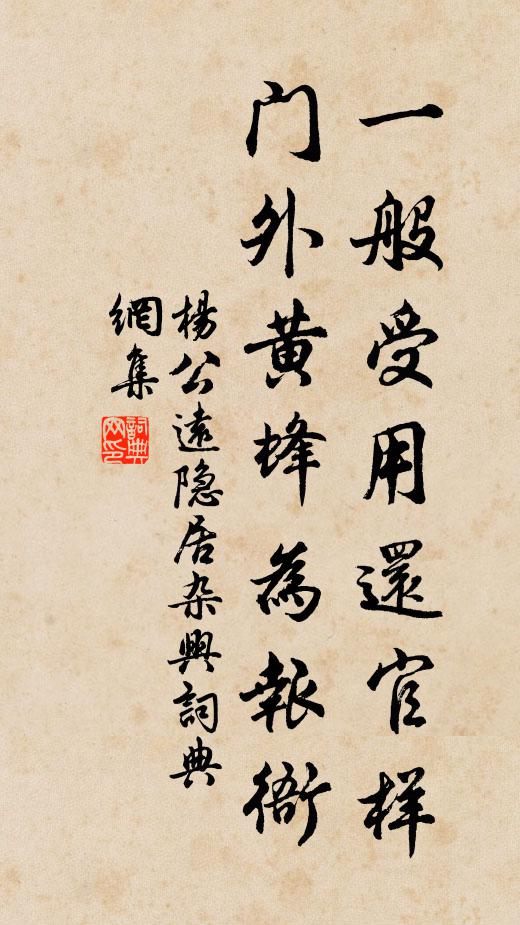 一般受用還官样
门外黄蜂為報衙
楊公遠隐居杂興詞典
網集
詞典網印